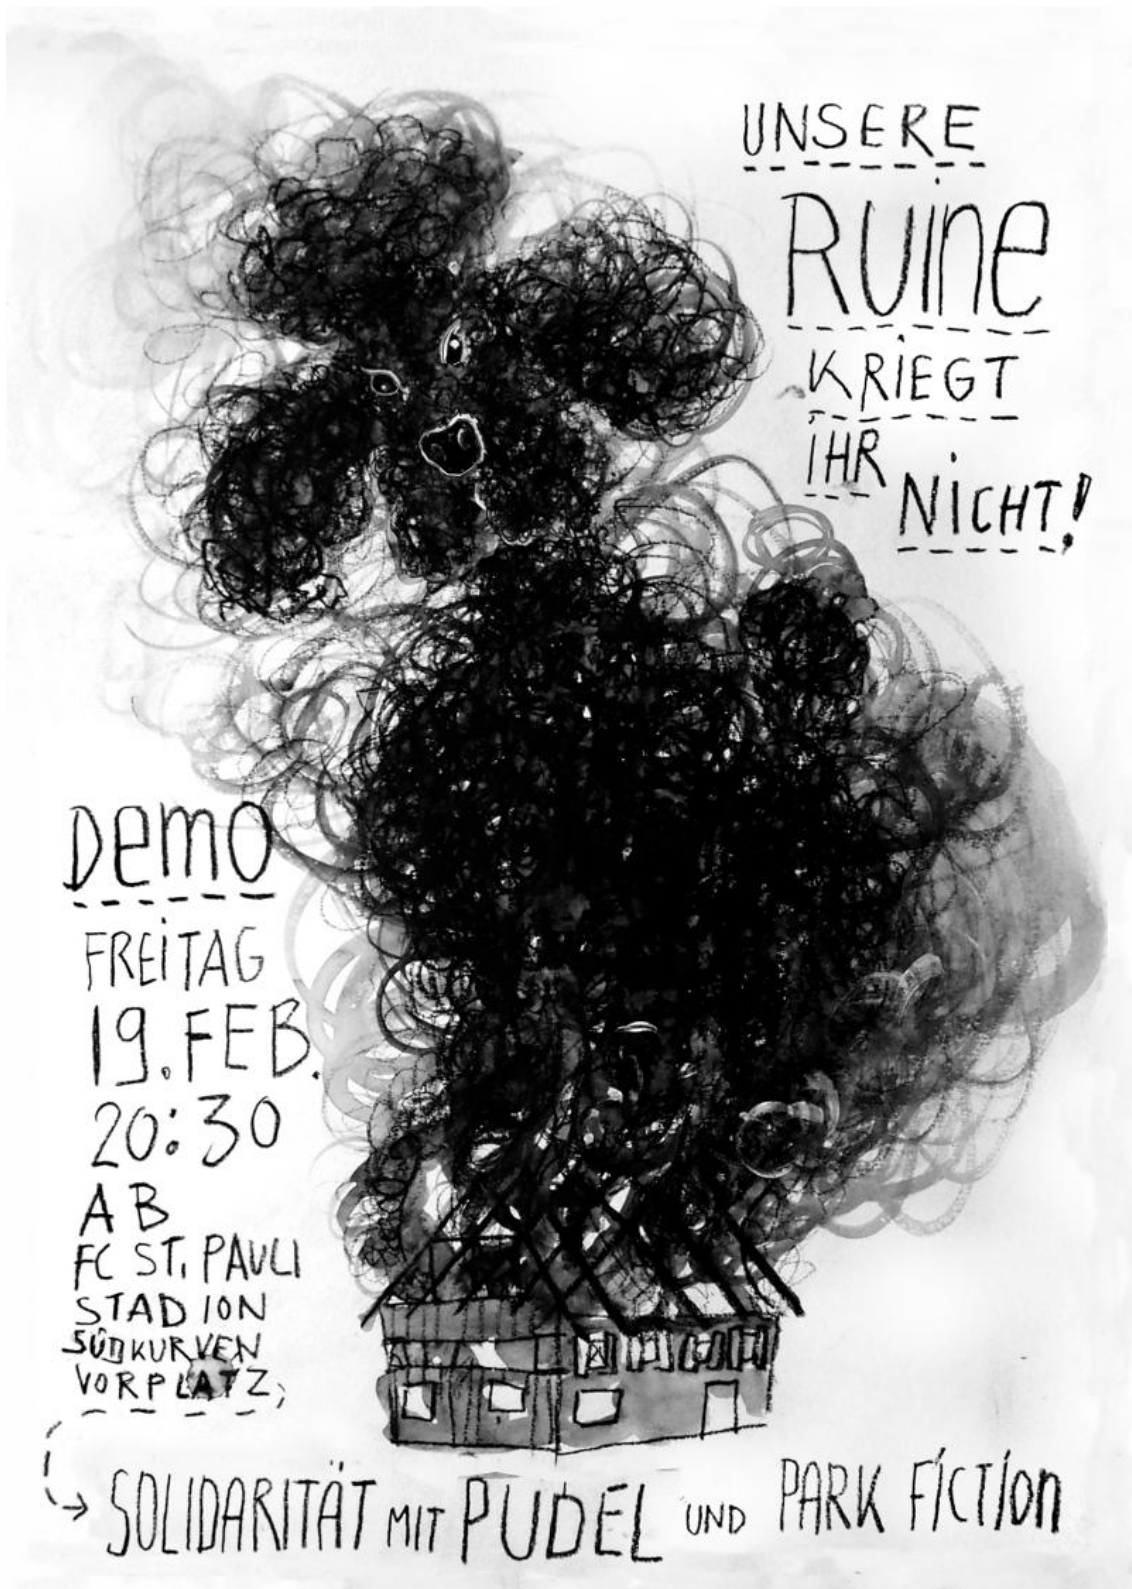 UNSERE
RUiNe
KRiEGT
iHR
NiCHT!
Demo
FREiTAG
19. FEB.
20:30
AB
FC ST. PAULI
STADION
SÜDKURVEN
VORPLATZ,
SOLIDARITÄT MIT PUDEL UND PARK FiCTion